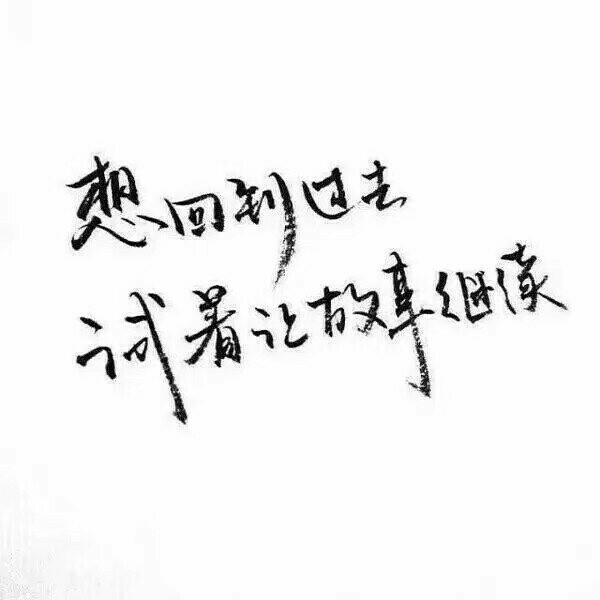 想回到过去
试着让故事继续